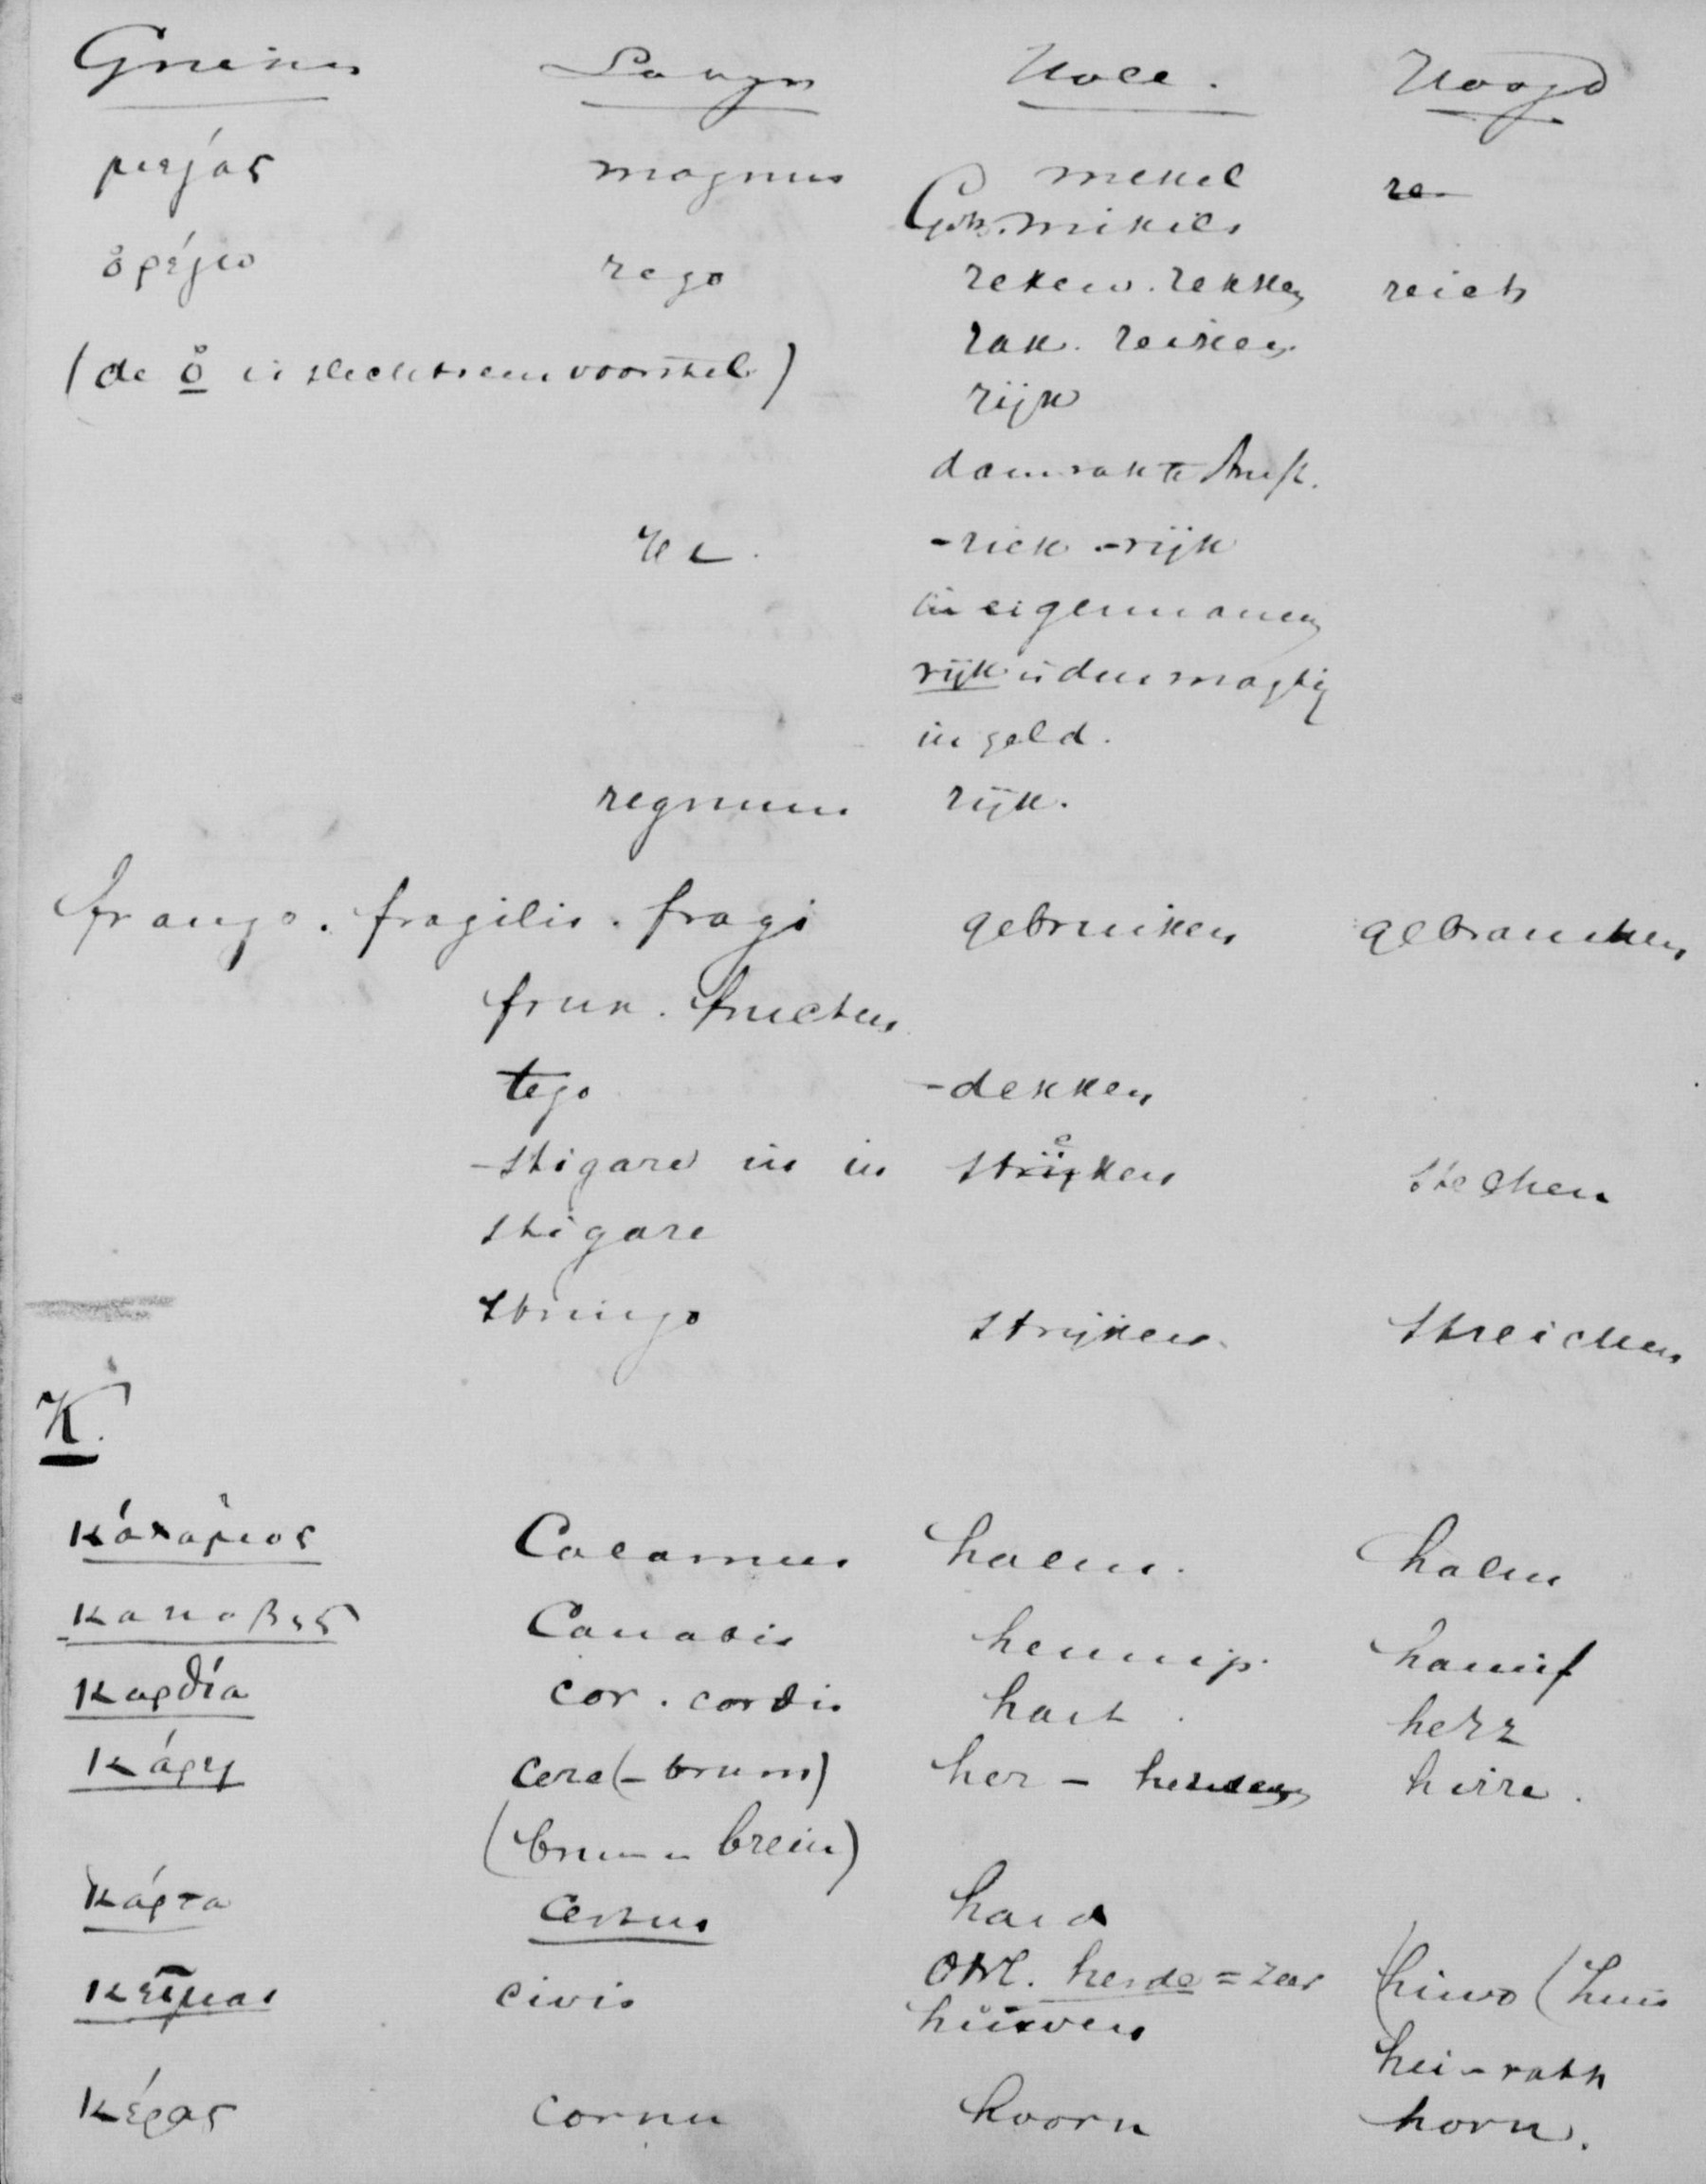 Grieks Latijn Holl. Hoogd
μεγάς magnus mekel
Goth. mikils
ὀρέγω rego reken. rekken reich
rak. reiken
(de ὀ is slechts een voorstel)
rijk
damrak te Amst.
-rick -rijk
in eigennamen
rijk is dus magtig
in geld.
regnum rijk.
frango. fragilis. fragi gebruiken gebrauchen
frux. fructus
tego -dekken
-stigare in in steken stechen
stigare
stringo strijken streichen
K.
κάλαμος Calamus halm. halm
καναβις Canabis hennip. hanif
καρδία cor. cordis hart. herz
κάρη cere(-brum) her- hersen hirre.
(brum = brein)
κάρτα certus hard
κεῖμαι civis ONl. herde = zeer hiwo (huis
huwen
hei-rath
κέρας cornu hoorn horn.